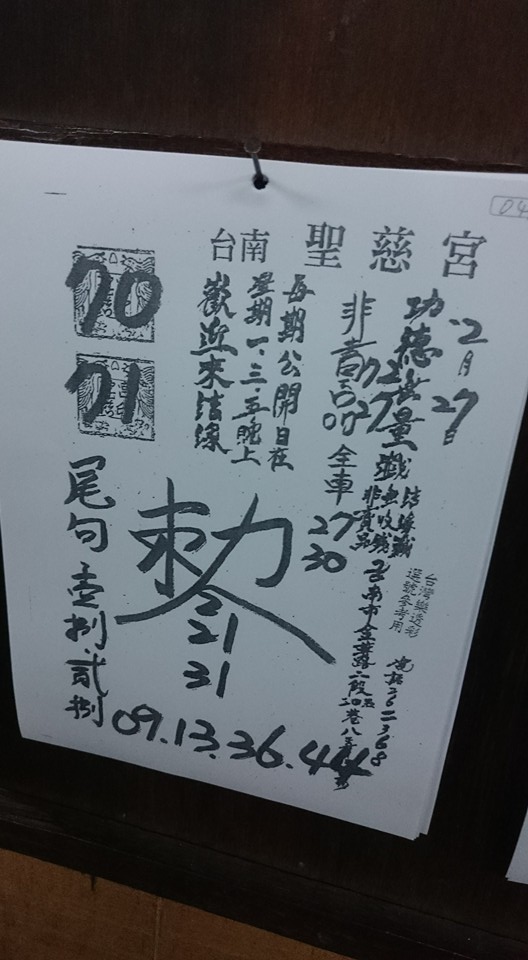 04
台南 聖慈宮
12月27日
功德無量
結緣戲
無收錢
非賣品
台灣樂透彩
選號參考用
台南市金華路二段
非賣品
全車
27
30
每期公開日在
星期一、三、五晚上
歡迎來結緣
70
71
敕令
21
31
尾句 壹捌.貳捌
09.13.36.44